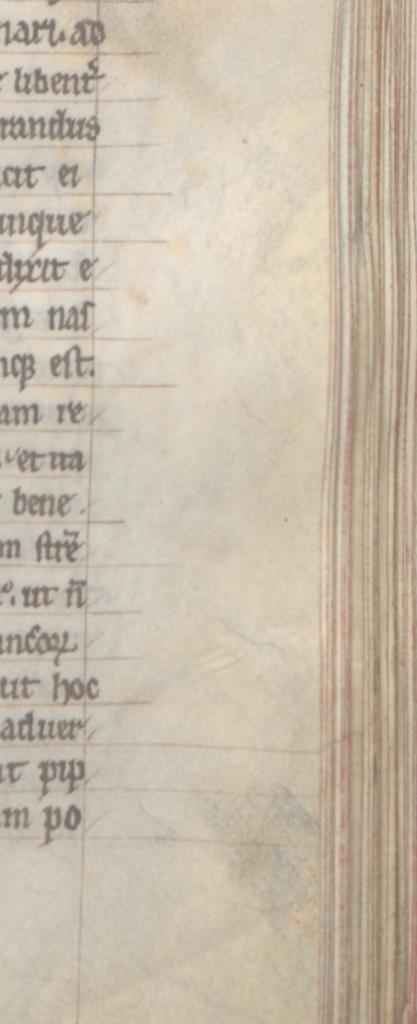 nari. ad
libent᷑
randus
cit ei
unque
dixit e
m nas
nqꝫ est.
am re
et ua
bene.
m strē
ut n̄
ancoꝝ
ut hoc
aduer
ut pip
m po